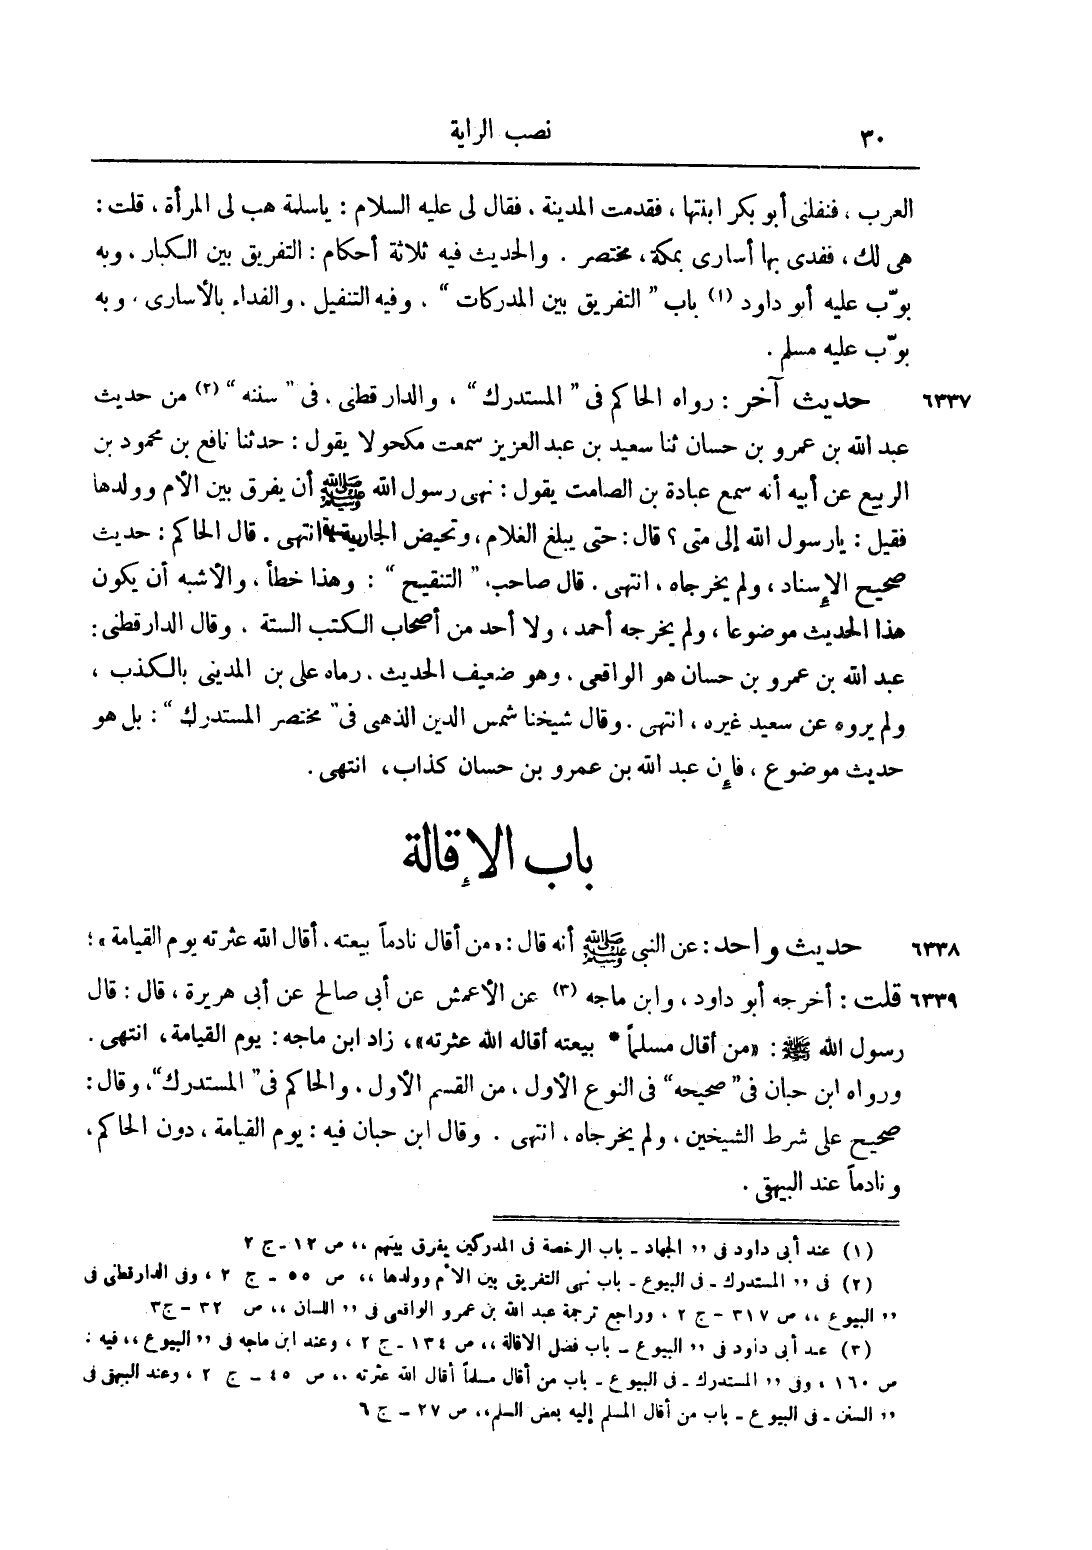 ٣٠ نصب الراية
العرب ، فنفلنى أبو بكر ابنتها ، فقدمت المدينة . فقال لى عليه السلام : ياسلمة هب لى المرأة ، قلت :
هى لك ، ففدى بها أسارى بمكة ، مختصر . والحديث فيه ثلاثة أحكام : التفريق بين الكبار ، وبه
بوّب عليه أبو داود (١) باب " التفريق بين المدركات " . وفيه التنفيل . والفداء بالأسارى ، وبه
بوّب عليه مسلم .
٦٣٣٧ حديث آخر : رواه الحاكم فى " المستدرك " ، والدارقطنى . فى " سننه " (٢) من حديث
عبد الله بن عمرو بن حسان ثنا سعيد بن عبد العزيز سمعت مكحولا يقول : حدثنا نافع بن محمود بن
الربيع عن أبيه أنه سمع عبادة بن الصامت يقول : نهى رسول الله ﷺ أن يفرق بين الأم وولدها
فقيل : يارسول الله إلى متى ؟ قال : حتى يبلغ الغلام ، وتحيض الجارية ، انتهى . قال الحاكم : حديث
صحيح الإسناد ، ولم يخرجاه ، انتهى . قال صاحب " التنقيح " : وهذا خطأ ، والأشبه أن يكون
هذا الحديث موضوعا ، ولم يخرجه أحمد ، ولا أحد من أصحاب الكتب الستة . وقال الدارقطنى :
عبد الله بن عمرو بن حسان هو الواقعى . وهو ضعيف الحديث . رماه على بن المدينى بالكذب ،
ولم يروه عن سعيد غيره ، انتهى . وقال شيخنا شمس الدين الذهبى فى " مختصر المستدرك " : بل هو
حديث موضوع ، فإن عبد الله بن عمرو بن حسان كذاب ، انتهى .
باب الإقالة
٦٣٣٨ حديث واحد : عن النبى ﷺ أنه قال : « من أقال نادماً بيعته . أقال الله عثرته يوم القيامة » ؛
٦٣٣٩ قلت : أخرجه أبو داود ، وابن ماجه (٣) عن الأعمش عن أبى صالح عن أبى هريرة ، قال : قال
رسول الله ﷺ : « من أقال مسلماً * بيعته أقاله الله عثرته » ، زاد ابن ماجه : يوم القيامة ، انتهى .
ورواه ابن حبان فى " صحيحه " فى النوع الأول ، من القسم الأول . والحاكم فى " المستدرك " ، وقال :
صحيح على شرط الشيخين ، ولم يخرجاه . انتهى . وقال ابن حبان فيه : يوم القيامة ، دون الحاكم ،
ونادماً عند البيهقى .
(١) عند أبى داود فى ,, الجهاد ـ باب الرخصة فى المدركين يفرق بينهم ،، ص ١٢ ـ ج ٢
(٢) فى ,, المستدرك ـ فى البيوع ـ باب نهى التفريق بين الأم وولدها ،، ص ٥٥ ـ ج ٢ ، وفى الدارقطنى فى
,, البيوع ،، ص ٣١٧ ـ ج ٢ ، وراجع ترجمة عبد الله بن عمرو الواقعى فى ,, اللسان ،، ص ٣٢ ـ ج٣
(٣) عند أبى داود فى ,, البيوع ـ باب فضل الاقالة ،، ص ١٣٤ ـ ج ٢ ، وعند ابن ماجه فى ,, البيوع ،، فيه :
ص ١٦٠ ، وفى ,, المستدرك ـ فى البيوع ـ باب من أقال مسلماً أقال الله عثرته ،، ص ٤٥ ـ ج ٢ ، وعند البيهقى فى
,, السنن ـ فى البيوع ـ باب من أقال المسلم إليه بعض السلم،، ص ٢٧ ـ ج ٦